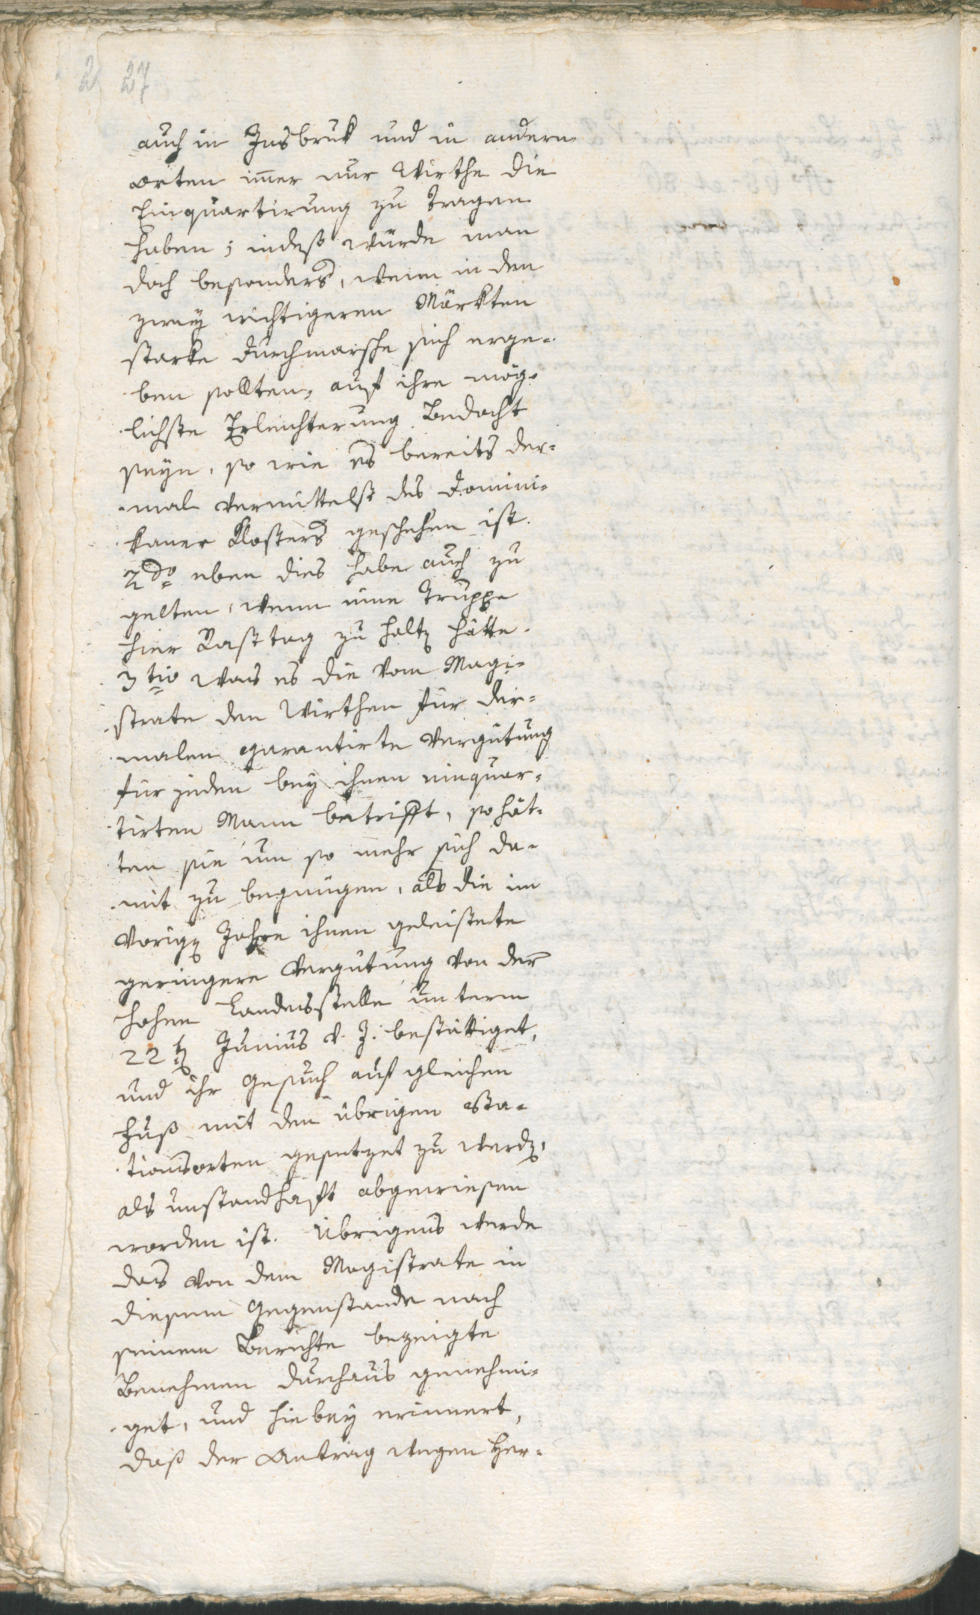 27
auch in Insbruk und in andern
orten im̅er nur Wirthe die
Einquartirung zu tragen
haben; indeß würde man
doch besonders, wenn in den
zwey wichtigeren Märkten
starke Durchmarsche sich erge-
ben sollten, auf ihre mög-
lichste Erleichterung Bedacht
seyn, so wie es bereits der-
mal vermittelst des Domini-
kaner Klosters geschehen ist.
2do eben dies habe auch zu
gelten, wenn eine Truppe
hier Rasttag zu halten hätte.
3tio Was es die vom Magi-
strate den Wirthen für der-
malen garantirte Vergütung
für jeden bey ihnen einquar-
tirten Mann betrifft, so hät-
ten sie um so mehr sich da-
mit zu begnügen, als die im
vorigen Jahre ihnen geleistete
geringere Vergütung von der
hohen Landesstelle unterm
22ten Junius v. J. bestättiget,
und ihr Gesuch auf gleichen
Fuß mit den übrigen Sta-
tionsorten gesetzet zu werden,
als unstandhaft abgewiesen
worden ist. Übrigens werde
das von dem Magistrate in
diesem Gegenstande nach
seinem Berichte bezeigte
Benehmen durchaus genehmi-
get, und hiebey erinnert,
daß der Antrag wegen Her-